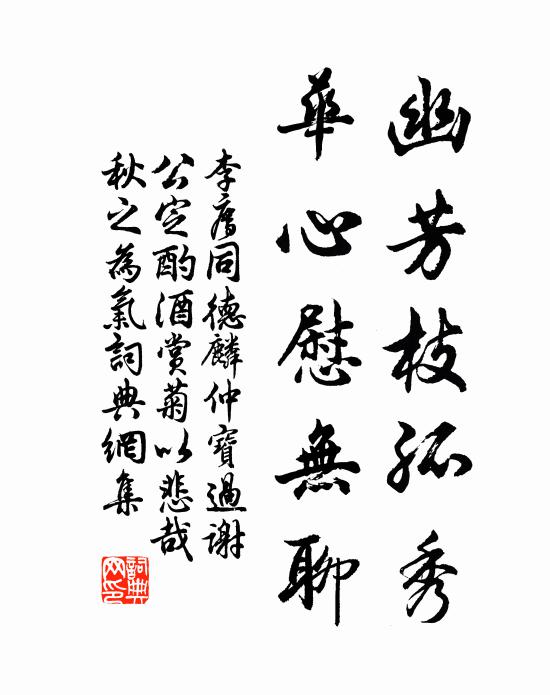 幽芳枝孤秀
華心慰無聊
李廌同德麟仲寶過謝
公定酌酒賞菊以悲哉
秋之為氣詞典網集
詞典
网印